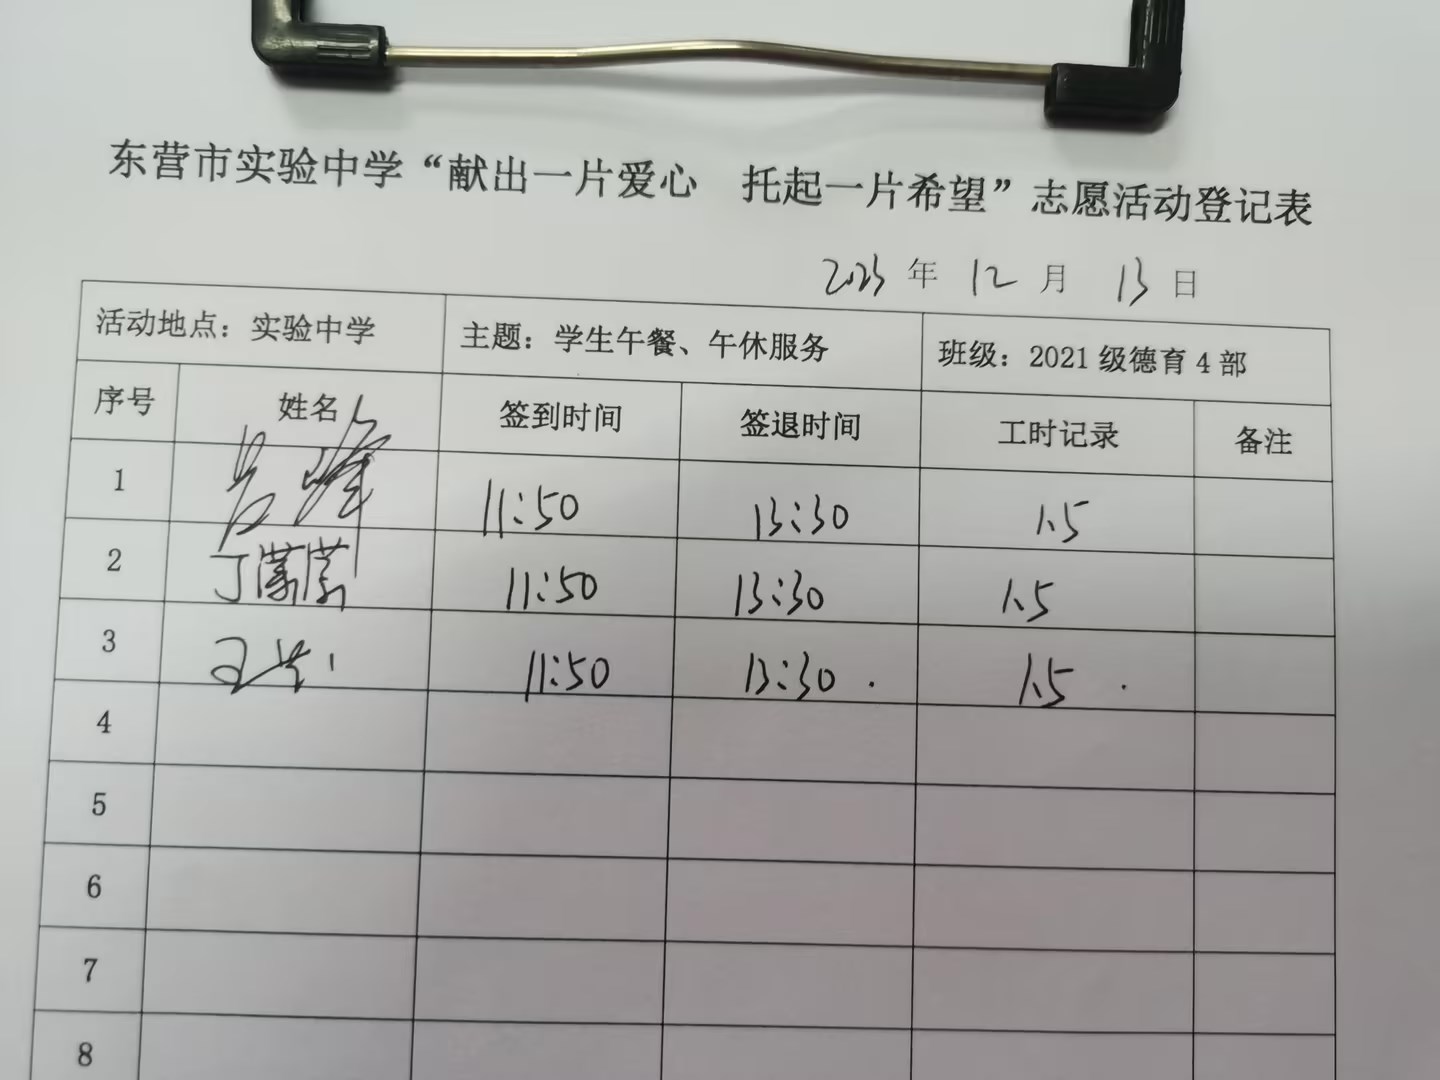 东营市实验中学“献出一片爱心 托起一片希望”志愿活动登记表
2023年 12月 13日
活动地点：实验中学 主题：学生午餐、午休服务 班级：2021级德育4部
序号 姓名 签到时间 签退时间 工时记录 备注
1 11:50 13:30 1.5
2 丁蒙蒙 11:50 13:30 1.5
3 11:50 13:30 . 1.5 .
4
5
6
7
8